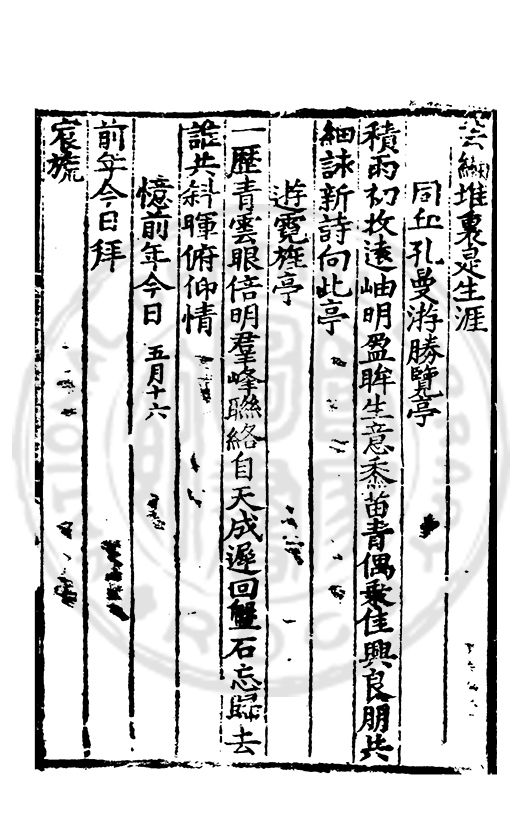 堆裏是生涯
同丘孔曼游勝覽亭
積雨初收遠岫明盈眸生意黍苗青偶乘佳興良朋共
細詠新詩向此亭
游霓旌亭
一歷青雲眼倍明羣峰聯絡自天成遲回盤石忘歸去
誰共斜暉俯仰情
憶前年今日 五月十六
前年今日拜
宸旒